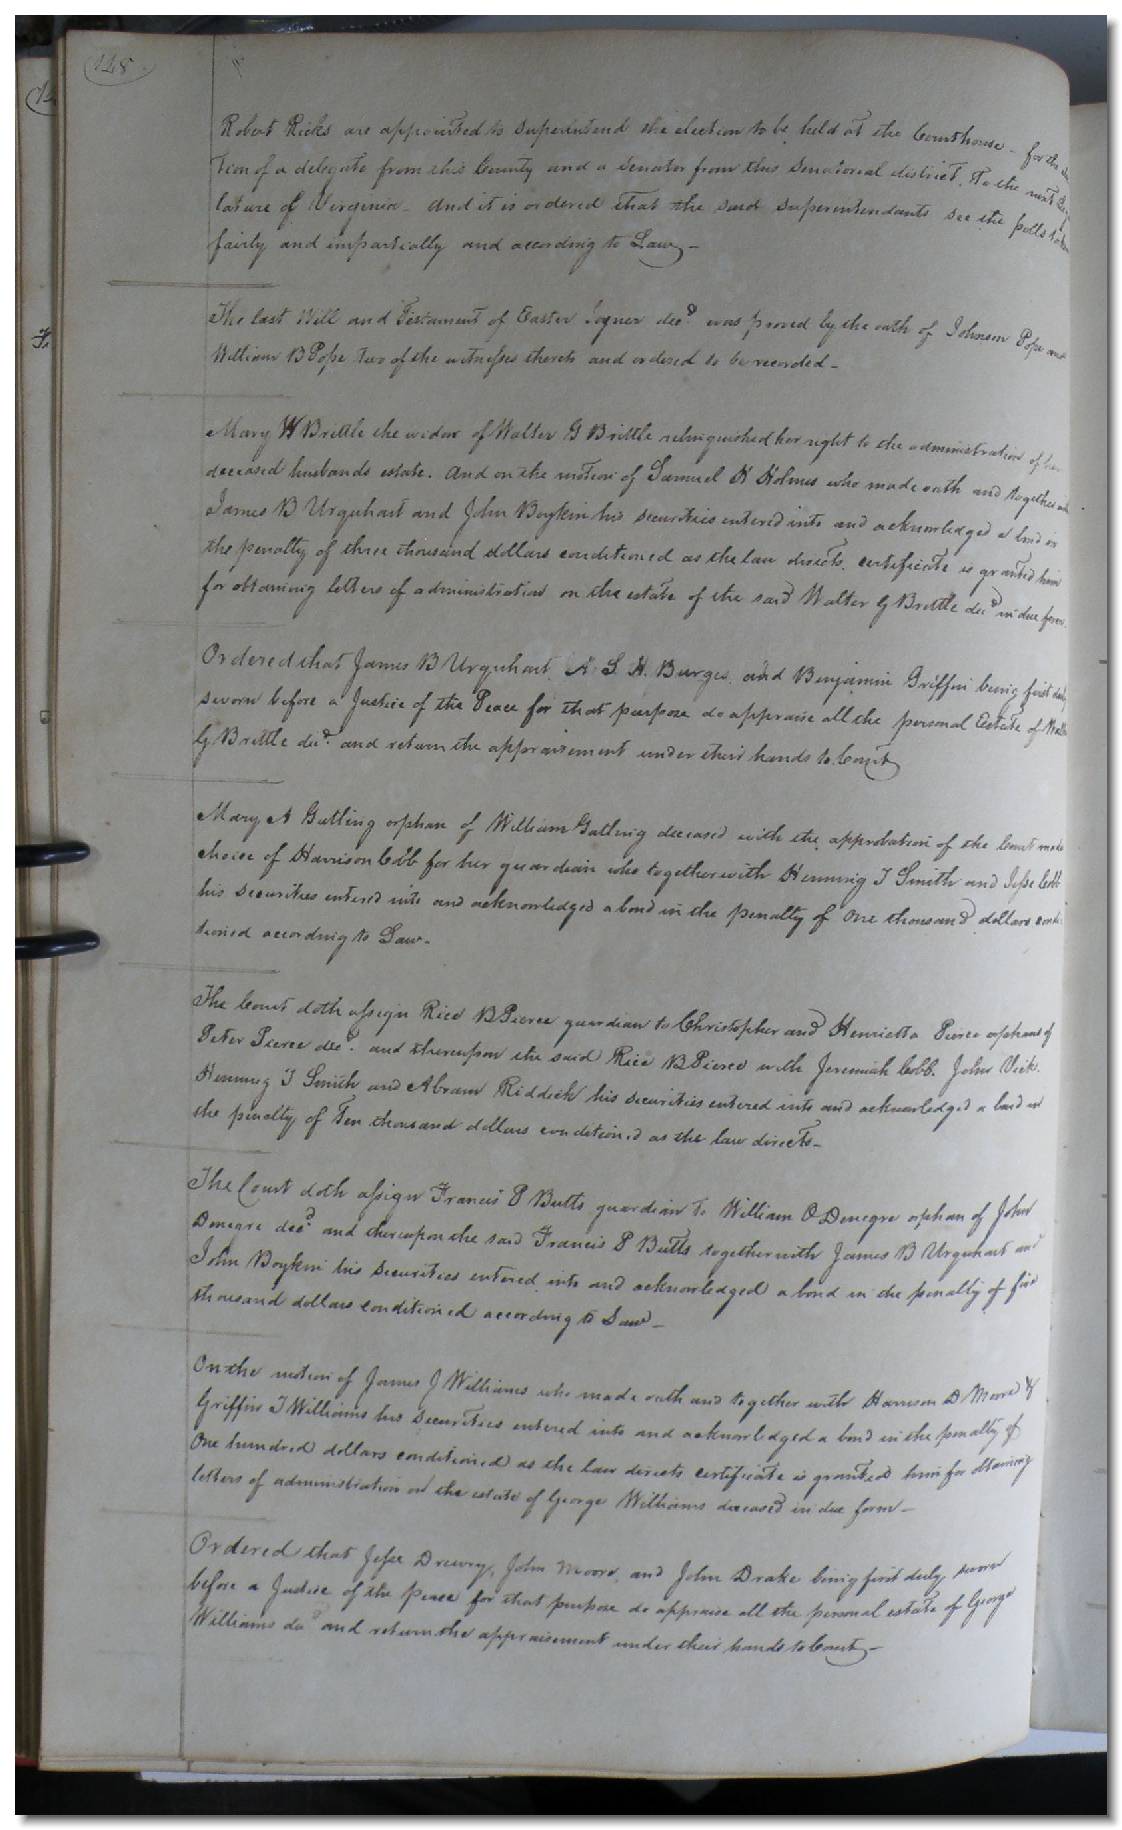 148
Robert Ricks are appointed to superintend the election to be held at the Courthouse - for the
tion of a delegate from this County and a Senator from this Senatorial district, to the next
lature of Virginia - And it is ordered that the said superintendants see the polls taken
fairly and impartially and according to Law -
The last Will and Testament of Easter Joyner decd. was proved by the oath of Johnson Pope and
William B Pope two of the witnesses thereto and ordered to be recorded -
Mary W Brittle the widow of Walter G Brittle relinquished her right to the administration of her
deceased husbands estate. And on the motion of Samuel H Holmes who made oath and together with
James B Urquhart and John Boykin his securities entered into and acknowledged a bond in
the penalty of three thousand dollars conditioned as the law directs, certificate is granted him
for obtaining letters of administration on the estate of the said Walter G Brittle decd in due form.
Ordered that James B Urquhart, A. S. H. Burges, and Benjamin Griffin being first duly
sworn before a Justice of the Peace for that purpose do appraise all the personal Estate of Walter
G Brittle decd. and return the appraisement under their hands to Court
Mary A Gatling orphan of William Gatling deceased with the approbation of the Court made
choice of Harrison Cobb for her guardian who together with Henning T Smith and Jesse Cobb
his securities entered into and acknowledged a bond in the penalty of One thousand dollars condi
tioned according to Law.
The Court doth assign Rice B Pierce guardian to Christopher and Henrietta Pierce orphans of
Peter Pierce decd. and thereupon the said Rice B Pierce with Jeremiah Cobb, John Vick,
Henning T Smith and Abram Riddick his securities entered into and acknowledged a bond in
the penalty of Ten thousand dollars conditioned as the law directs -
The Court doth assign Francis P Butts guardian to William O Denegre orphan of John
Denegre decd. and thereupon the said Francis P Butts together with James B Urquhart and
John Boykin his securities entered into and acknowledged a bond in the penalty of five
thousand dollars conditioned according to Law -
On the motion of James J Williams who made oath and together with Harrison D Moore &
Griffin T Williams his securities entered into and acknowledged a bond in the penalty of
One hundred dollars conditioned as the law directs certificate is granted him for obtaining
letters of administration on the estate of George Williams deceased in due form -
Ordered that Jesse Drewry, John Moore, and John Drake being first duly sworn
before a Justice of the peace for that purpose do appraise all the personal estate of George
Williams decd and return the appraisement under their hands to Court -